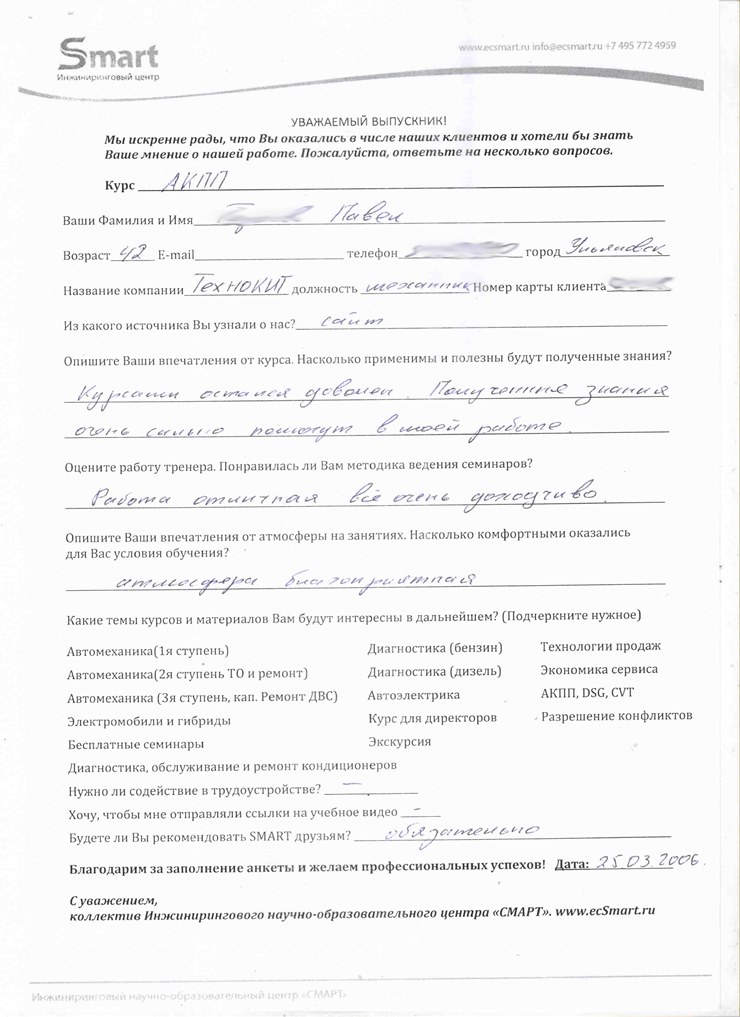 Smart
Инжиниринговый центр
www.ecsmart.ru info@ecsmart.ru +7 495 772 4959
УВАЖАЕМЫЙ ВЫПУСКНИК!
Мы искренне рады, что Вы оказались в числе наших клиентов и хотели бы знать
Ваше мнение о нашей работе. Пожалуйста, ответьте на несколько вопросов.
Курс АКПП
Ваши Фамилия и Имя Павел
Возраст 42 E-mail телефон город Ульяновск
Название компании ТехноКИТ должность механник Номер карты клиента
Из какого источника Вы узнали о нас? сайт
Опишите Ваши впечатления от курса. Насколько применимы и полезны будут полученные знания?
Курсами остался доволен. Полученные знания
очень сильно помогут в моей работе.
Оцените работу тренера. Понравилась ли Вам методика ведения семинаров?
Работа отличная всё очень доходчиво.
Опишите Ваши впечатления от атмосферы на занятиях. Насколько комфортными оказались
для Вас условия обучения?
атмосфера благоприятная
Какие темы курсов и материалов Вам будут интересны в дальнейшем? (Подчеркните нужное)
Автомеханика(1я ступень) Диагностика (бензин) Технологии продаж
Автомеханика(2я ступень ТО и ремонт) Диагностика (дизель) Экономика сервиса
Автомеханика (3я ступень, кап. Ремонт ДВС) Автоэлектрика АКПП, DSG, CVT
Электромобили и гибриды Курс для директоров Разрешение конфликтов
Бесплатные семинары Экскурсия
Диагностика, обслуживание и ремонт кондиционеров
Нужно ли содействие в трудоустройстве? —
Хочу, чтобы мне отправляли ссылки на учебное видео –
Будете ли Вы рекомендовать SMART друзьям? обязательно
Благодарим за заполнение анкеты и желаем профессиональных успехов! Дата: 25.03.2006.
С уважением,
коллектив Инжинирингового научно-образовательного центра «СМАРТ». www.ecSmart.ru
Инжиниринговый научно-образовательный центр «СМАРТ»